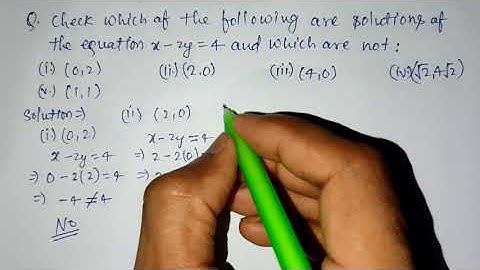 Q. Check which of the following are solutions of
the equation x-2y=4 and which are not:
(i) (0,2) (ii) (2,0) (iii) (4,0) (iv) (√2,4√2)
(v) (1,1)
Solution⇒
(i) (0,2)
x-2y=4
⇒ 0-2(2)=4
⇒ -4≠4
No
(ii) (2,0)
x-2y=4
⇒ 2-2(0)
⇒